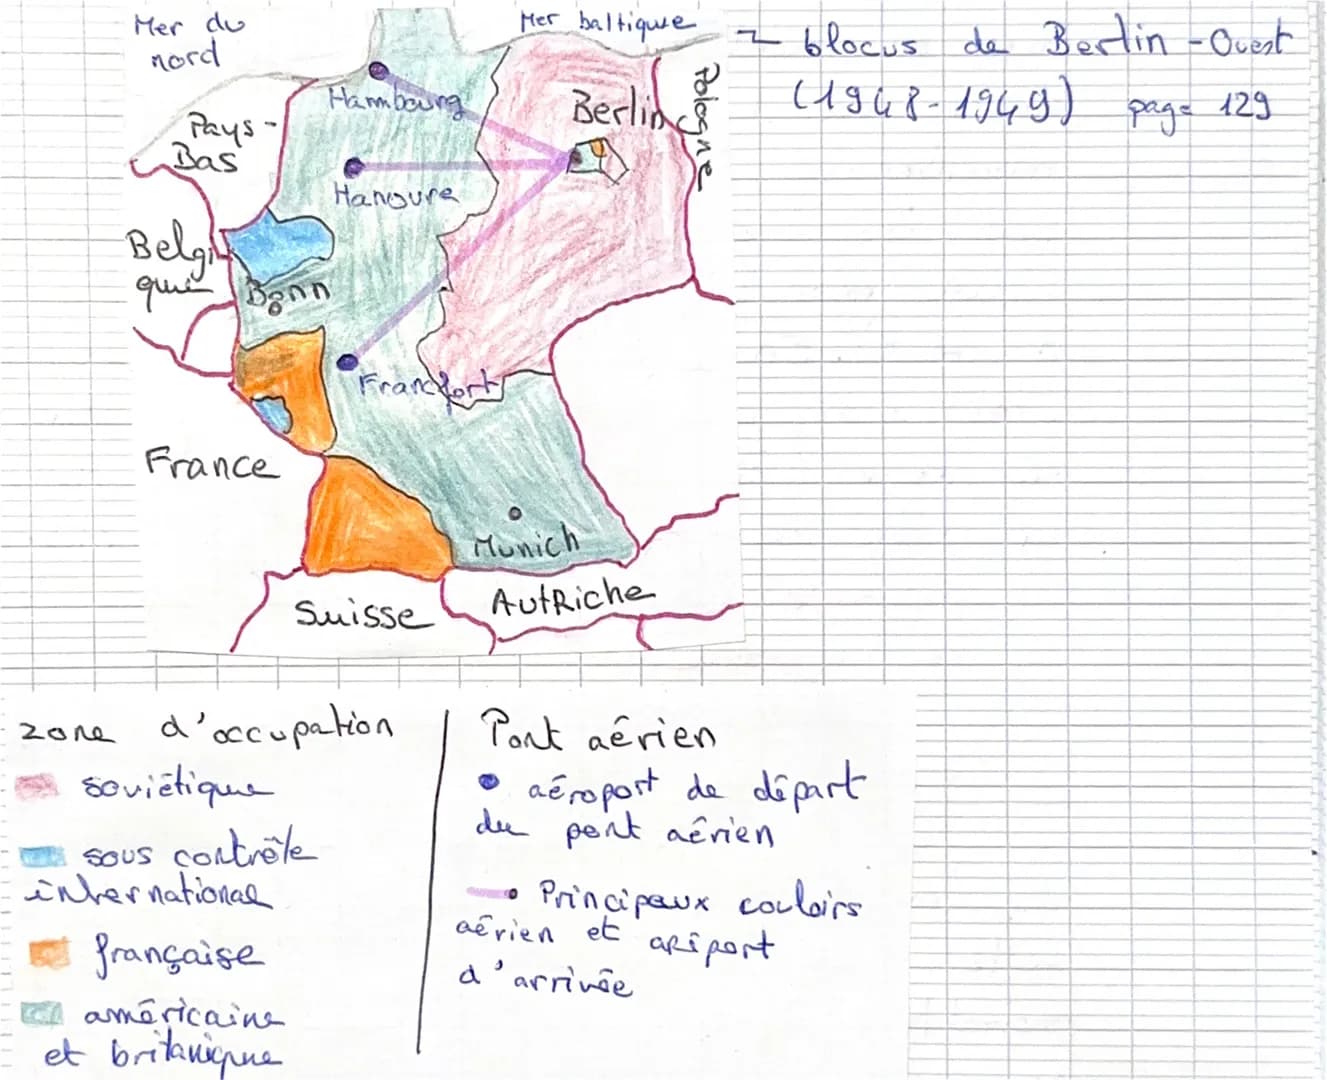 Mer du
nord
Mer baltique
blocus de Berlin-Ouest
(1948-1949) page 129
Pologne
Hambourg
Berlin
Pays-
Bas
Hanovre
Belgi
que
Bonn
Francfort
France
Munich
Suisse
AutRiche
zone d'occupation
soviétique
sous contrôle
international
française
américaine
et britanique
Pont aérien
aéroport de départ
du pont aérien
Principaux couloirs
aérien et
d'arrivée